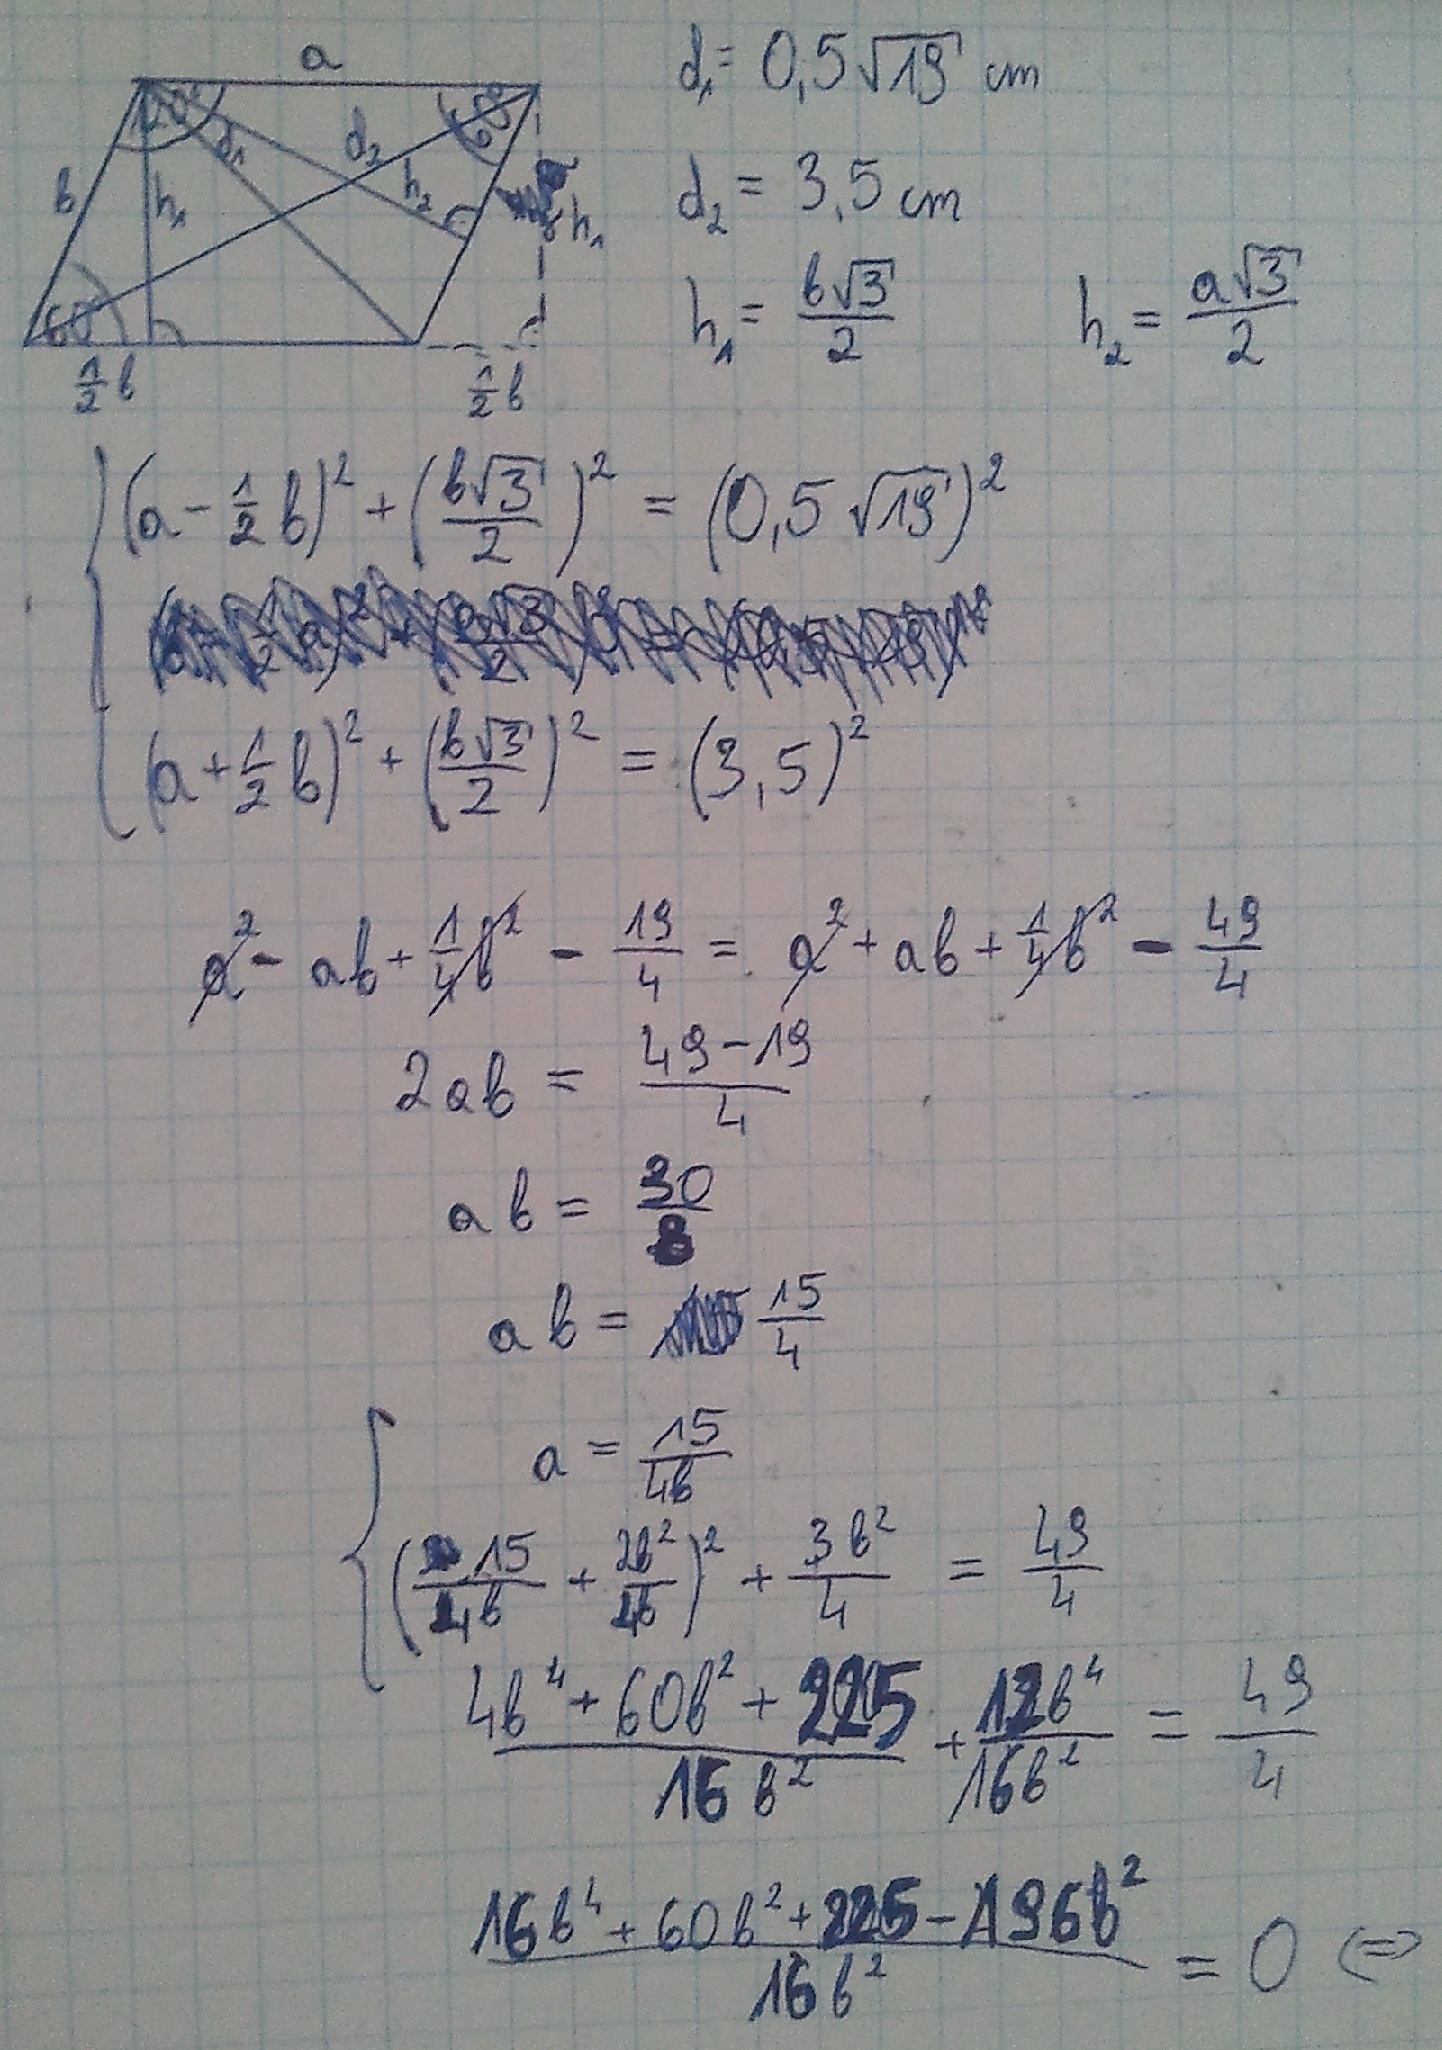 a
120° 60°
b d₁ d₂ h₁ h₂ h₁
60°
½b ½b
d₁ = 0,5√19 cm
d₂ = 3,5 cm
h₁ = b√3/2 h₂ = a√3/2
(a - ½b)² + (b√3/2)² = (0,5√19)²
(a + ½b)² + (b√3/2)² = (3,5)²
a² - ab + ¼b² - 19/4 = a² + ab + ¼b² - 49/4
2ab = (49-19)/4
ab = 30/8
ab = 15/4
a = 15/4b
(15/4b + 2b²/4b)² + 3b²/4 = 49/4
(4b⁴ + 60b² + 225)/16b² + 12b⁴/16b² = 49/4
(16b⁴ + 60b² + 225 - 196b²)/16b² = 0 ⇔